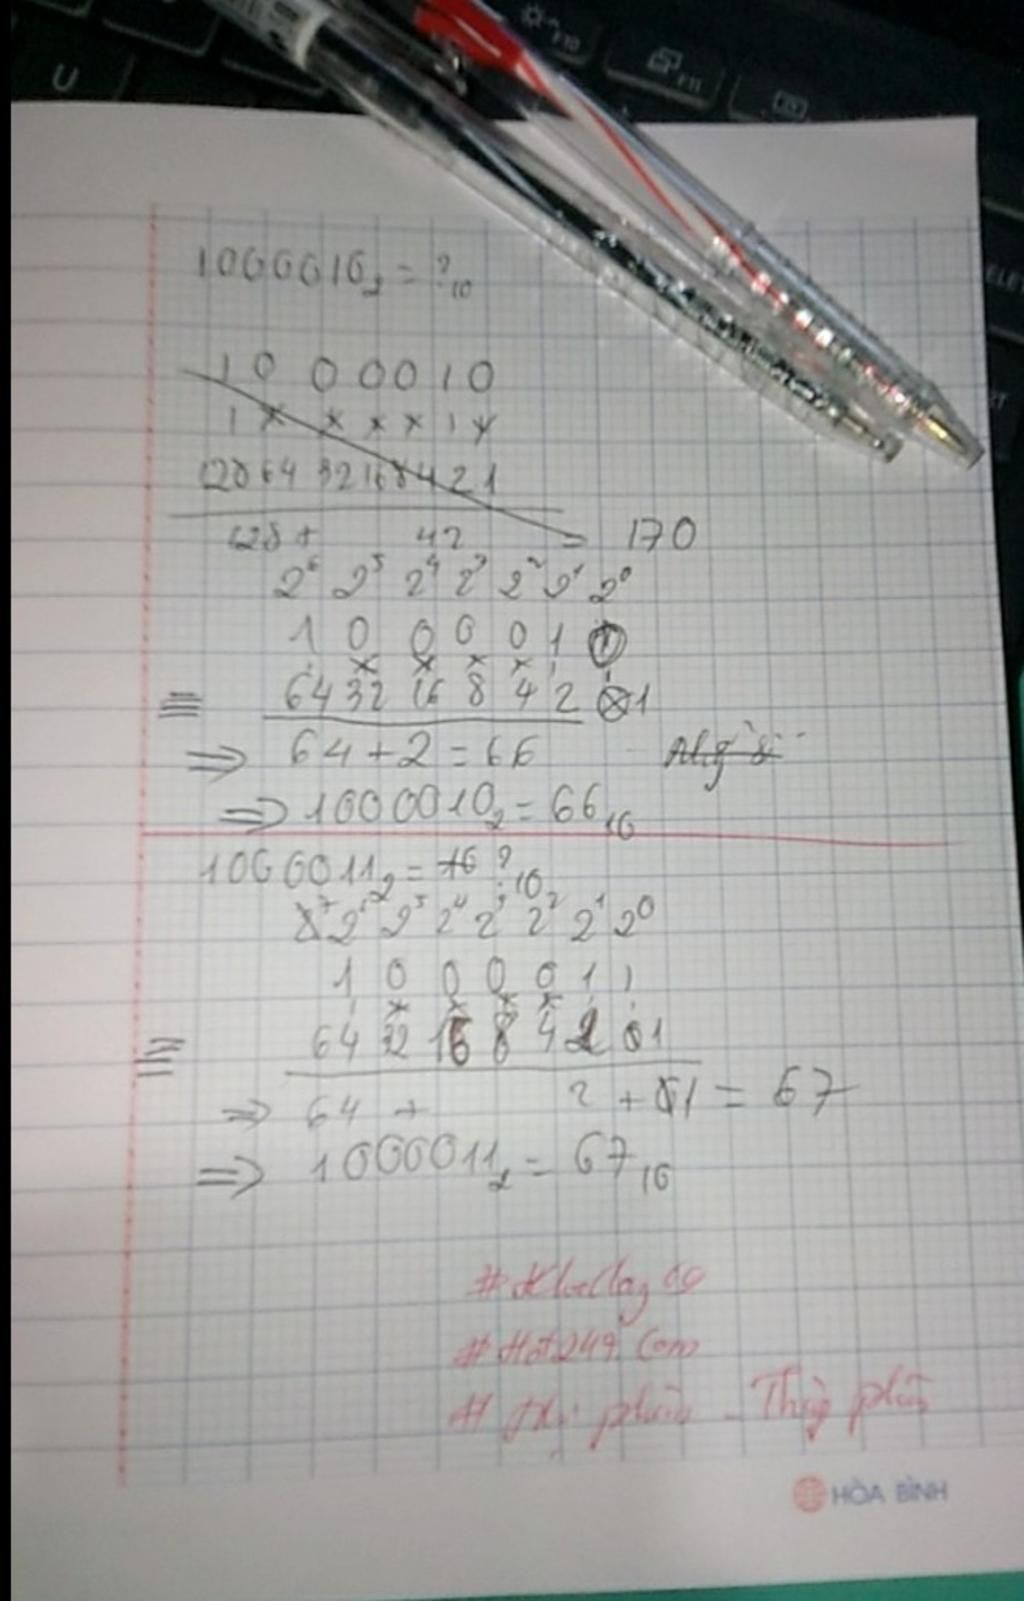 U
F10
F11
1000010₂ = ?₁₀
1 0 0 0 0 1 0
1 x x x x 1 x
128 64 32 16 8 4 2 1
128 + 42 = 170
2⁶ 2⁵ 2⁴ 2³ 2² 2¹ 2⁰
1 0 0 0 0 1 0
x x x x
≡ 64 32 16 8 4 2 1
⇒ 64 + 2 = 66
⇒ 1000010₂ = 66₁₀
1000011₂ = ?₁₀
2⁶ 2⁵ 2⁴ 2³ 2² 2¹ 2⁰
1 0 0 0 0 1 1
x x x x
≡ 64 32 16 8 4 2 1
⇒ 64 + 2 + 1 = 67
⇒ 1000011₂ = 67₁₀
#
# Hot249 Com
#
HÒA BÌNH